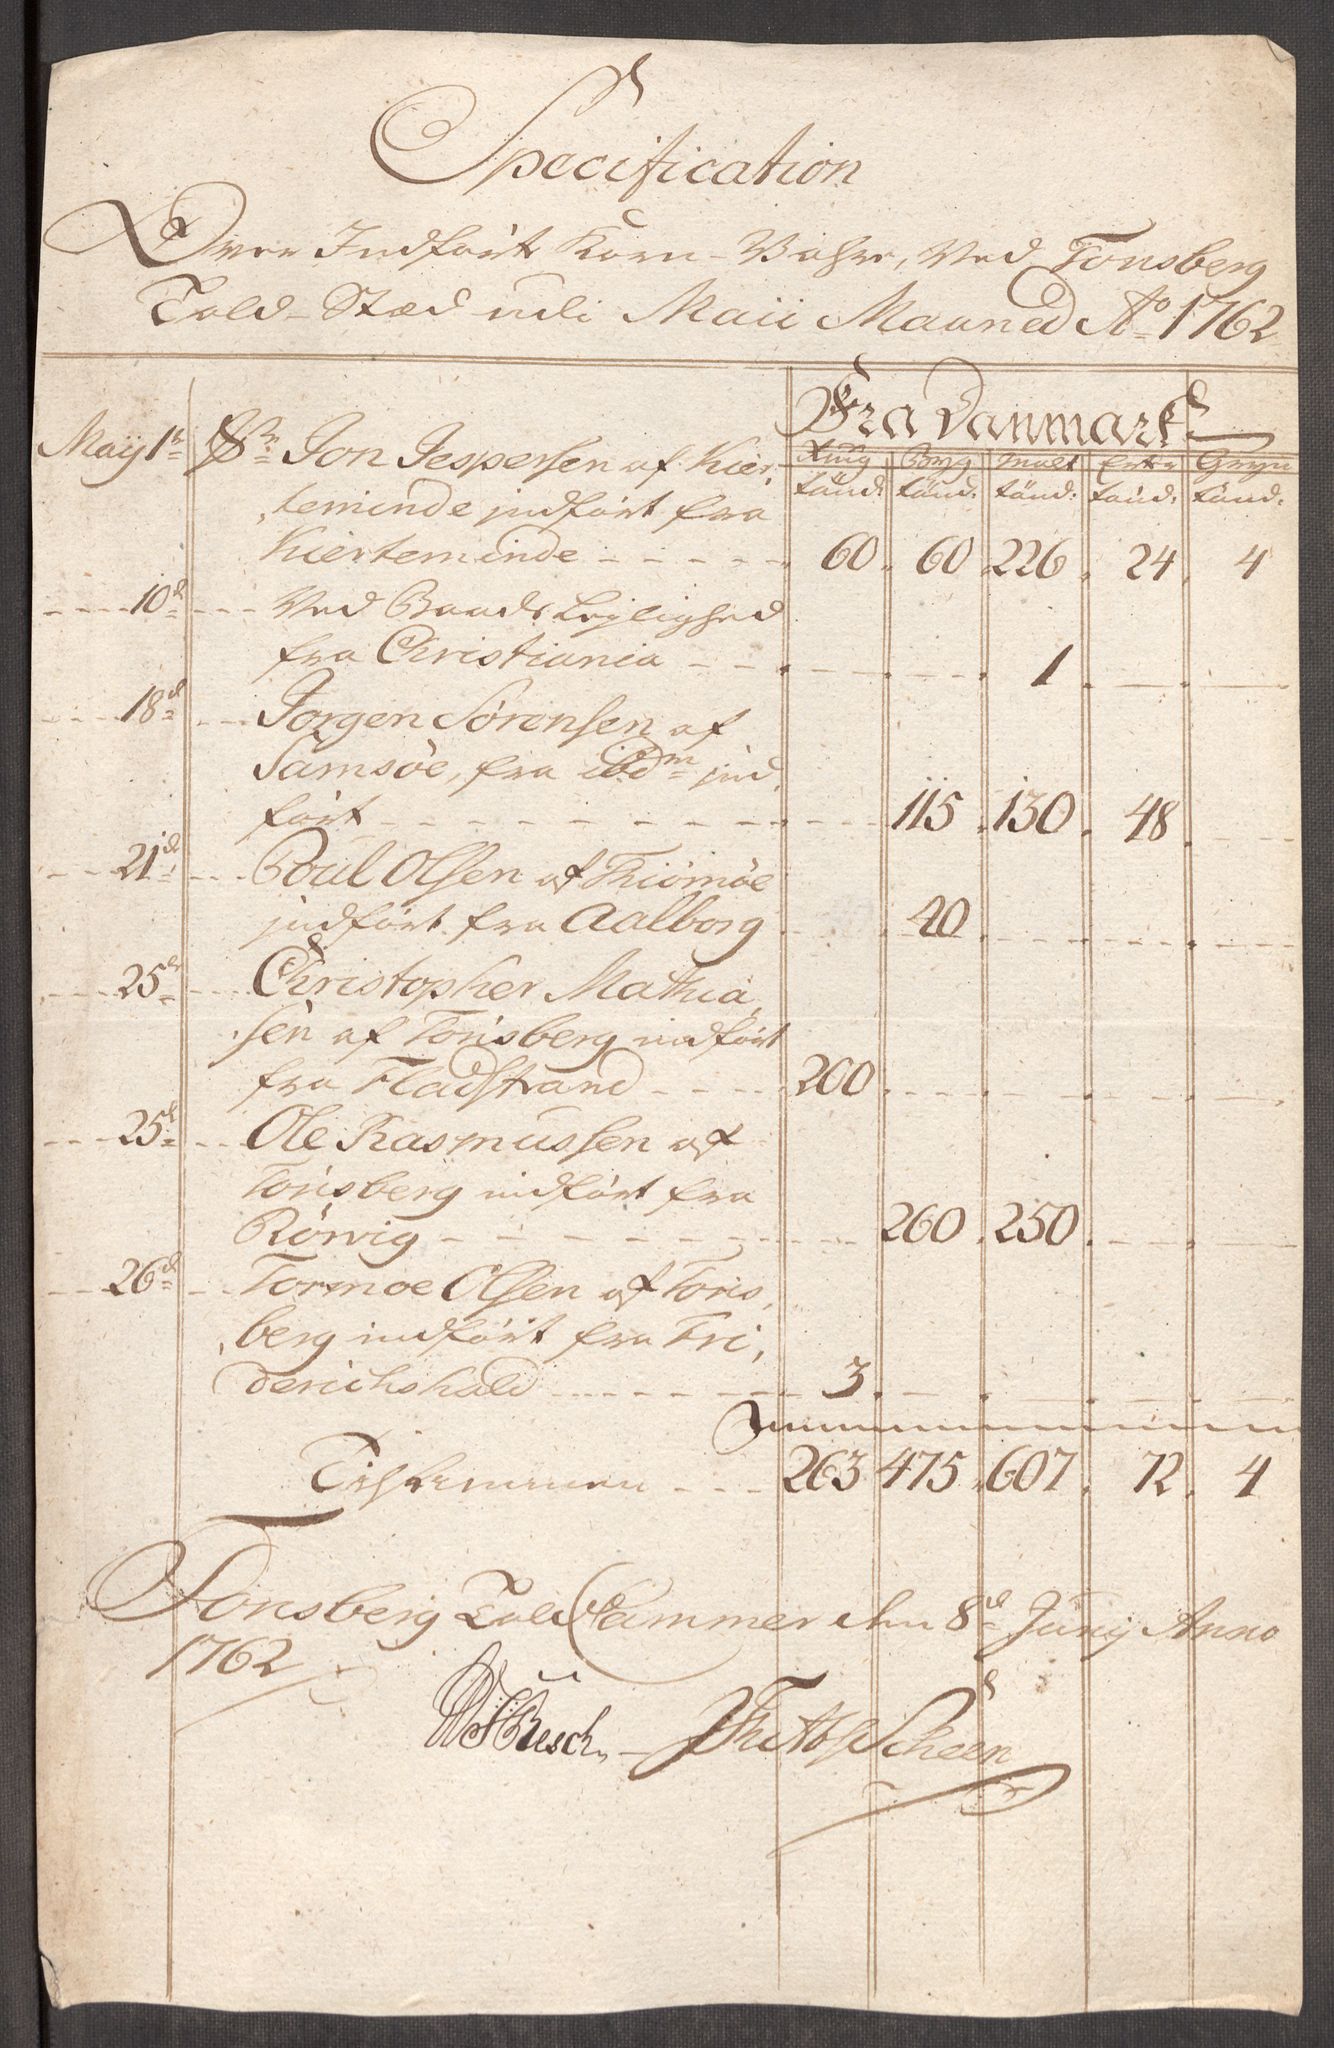 Specification
Over Indført Korn-Vahre, Ved Tonsberg
Told-Stæd udi Maii Maaned Ao 1762
Fra Danmark
Rug Byg Malt Erter Gryn
tønd: tønd: tønd: tønd: tønd:
May 1te Skr: Jon Jespersen af Kier,
teminde indført fra
Kierteminde 60. 60. 226. 24. 4
10de Ved Baads Lejlighed
fra Christiania 1
18de Jørgen Sørensen af
Samsøe, fra ibdm ind,
ført 115. 130. 48
21de Poul Olsen af Tiømøe
indført fra Aalborg 40
25de Christopher Mathia,
sen af Tonsberg indført
fra Fladstrand 200
25de Ole Rasmussen af
Tonsberg indført fra
Rørvig 260. 250
26de Tormoe Olsen af Tons,
berg indført fra Fri,
derichshald 3
Tilsammen 263 475. 607. 72. 4
Tonsberg Told Cammer den 8de Junij Anno
1762
Scheen